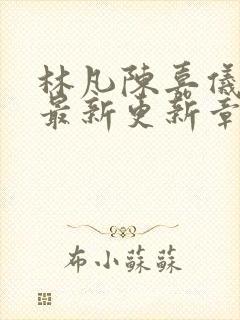 林凡陳嘉儀
最新更新章
布小蘇蘇